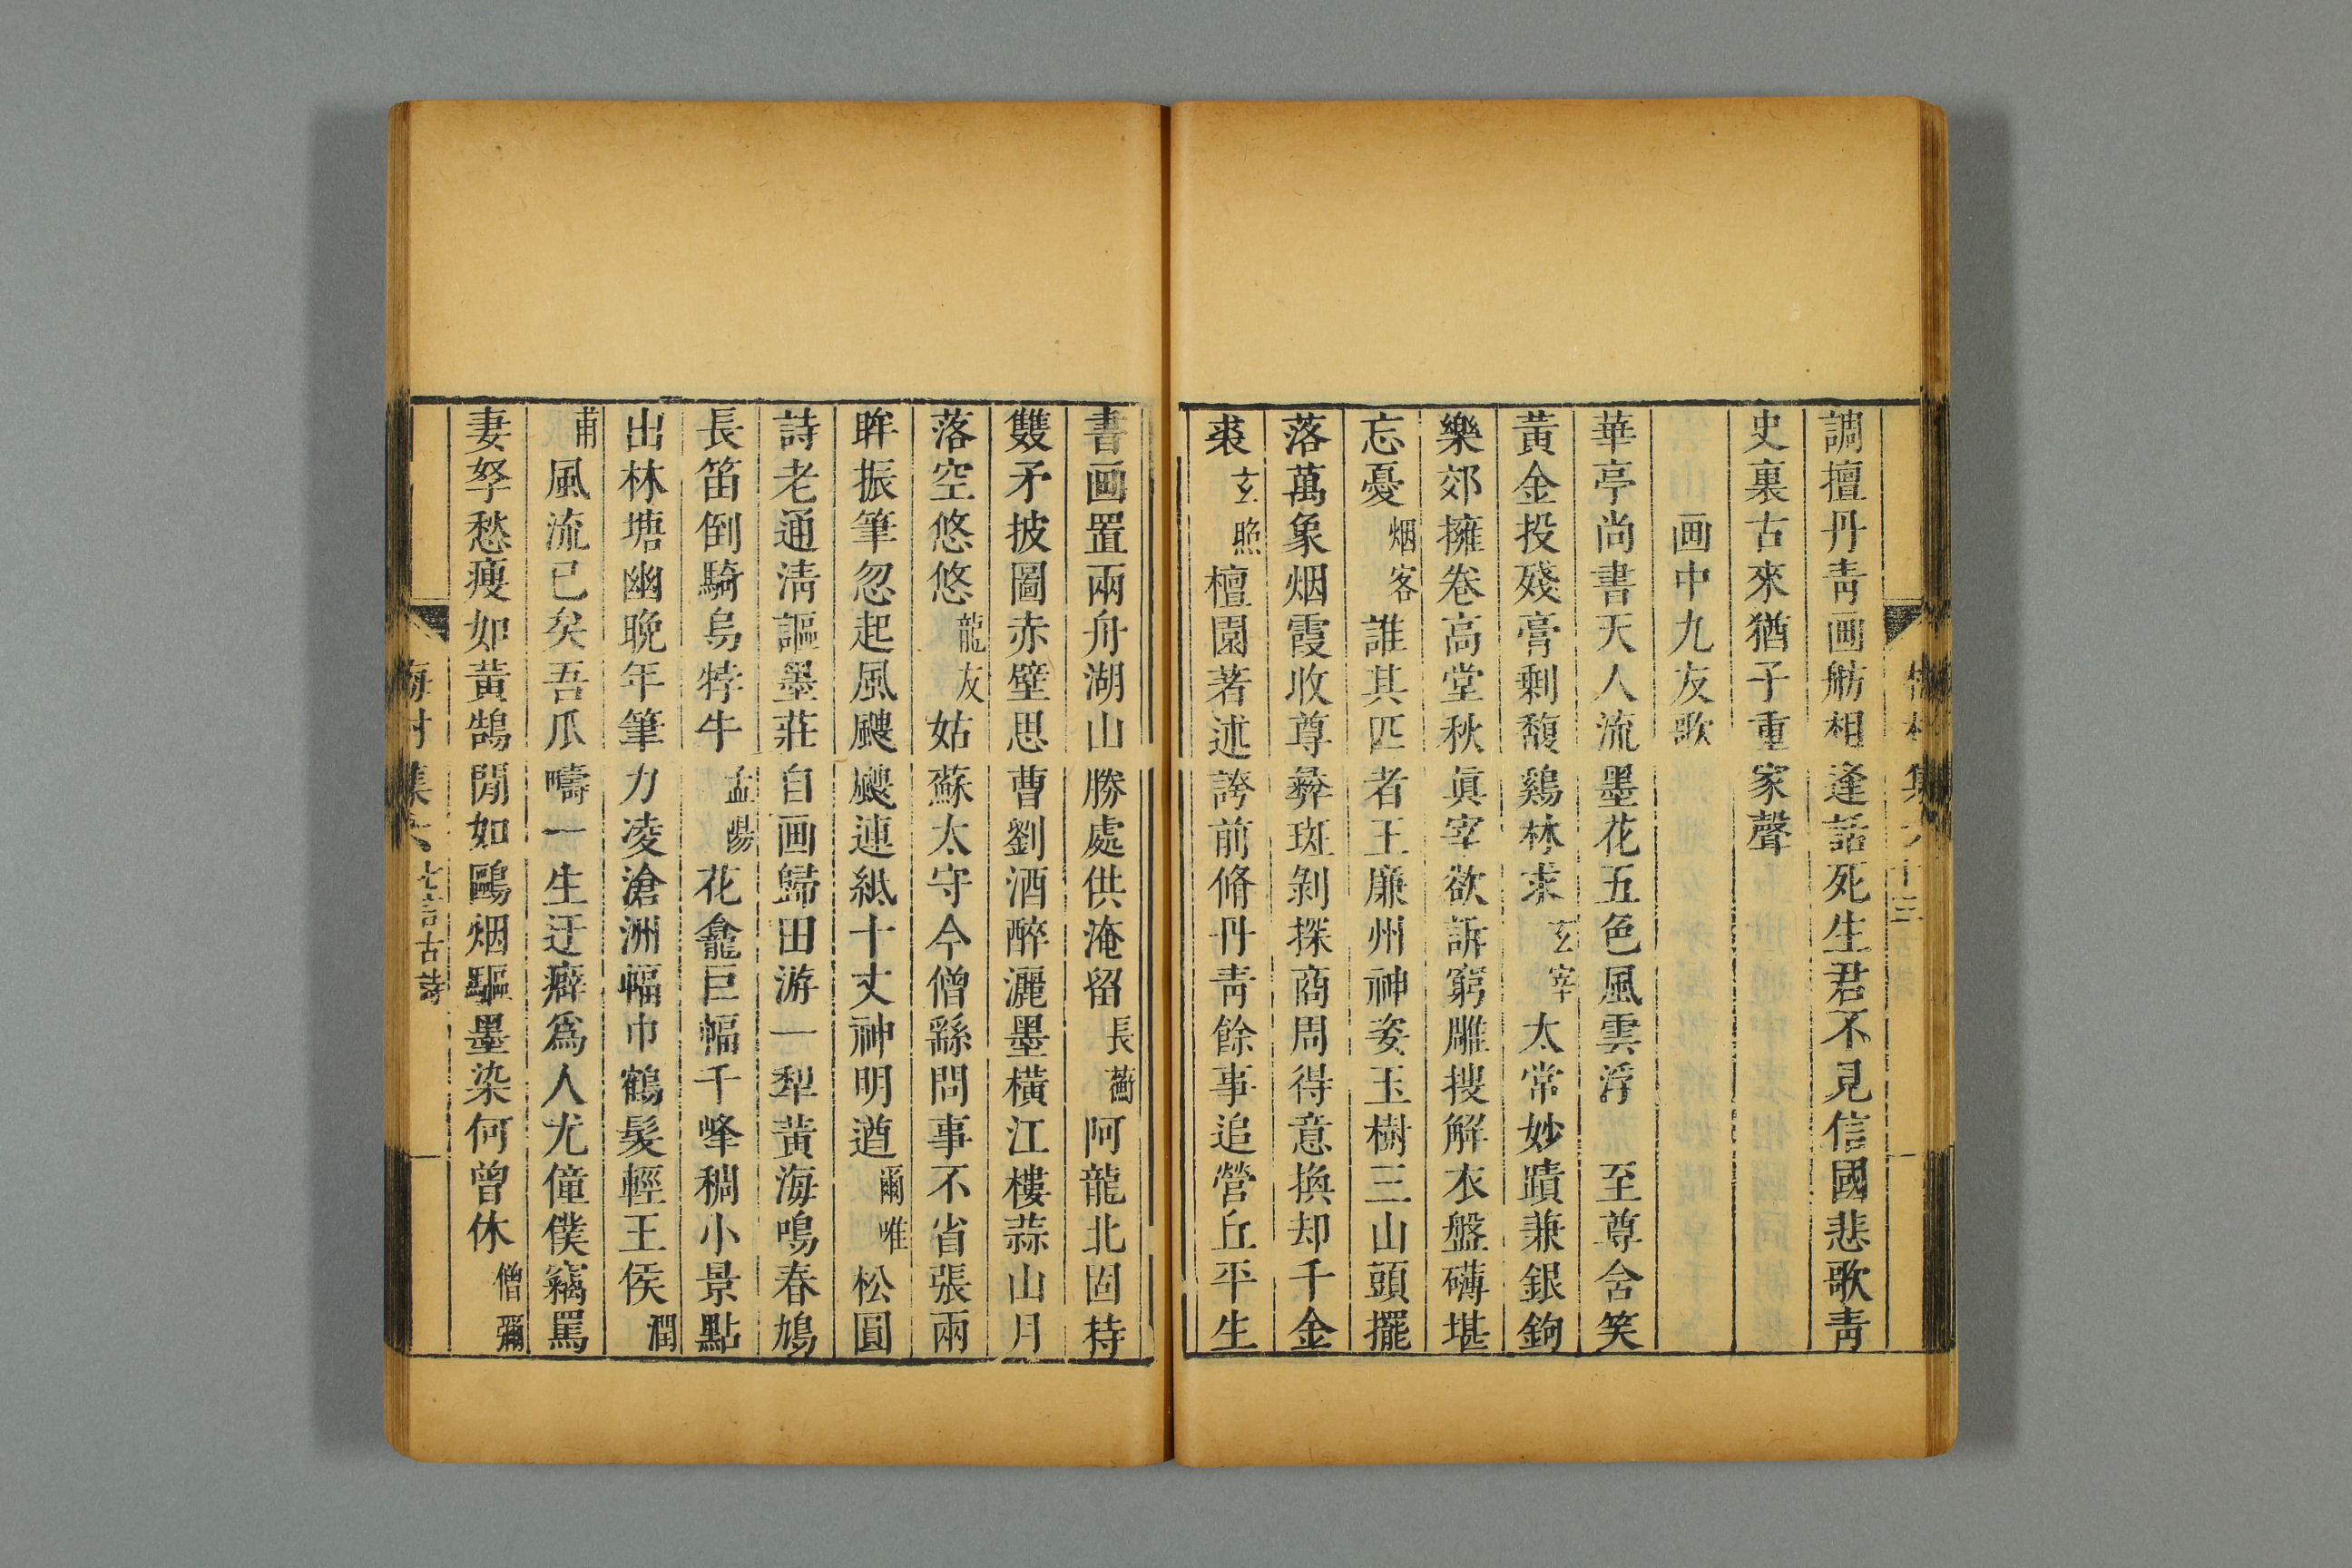 調擅丹青画舫相逢話死生君不見信國悲歌青
史裏古來猶子重家聲
画中九友歌
華亭尚書天人流墨花五色風雲浮 至尊含笑
黃金投殘膏剩馥鷄林求玄宰太常妙蹟兼銀鉤
樂郊擁卷高堂秋眞宰欲訴窮雕搜解衣盤礴堪
忘憂烟客誰其匹者王廉州神姿玉樹三山頭擺
落萬象烟霞收尊彝斑剝探商周得意換却千金
裘玄照檀園著述誇前脩丹青餘事追營丘平生
書画置兩舟湖山勝處供淹留長蘅阿龍北固持
雙矛披圖赤壁思曹劉酒醉灑墨橫江樓蒜山月
落空悠悠龍友姑蘇太守今僧繇問事不省張兩
眸振筆忽起風颼颼連紙十丈神明遒爾唯松圓
詩老通清謳墨莊自画歸田游一犁黃海鳴春鳩
長笛倒騎烏牸牛孟陽花龕巨幅千峰稠小景點
出林塘幽晚年筆力凌滄洲幅巾鶴髮輕王侯潤
甫風流已矣吾瓜疇一生迂癖爲人尤僮僕竊罵
妻孥愁瘦如黃鵠閒如鷗烟驅墨染何曾休僧彌
梅村集 七言古詩